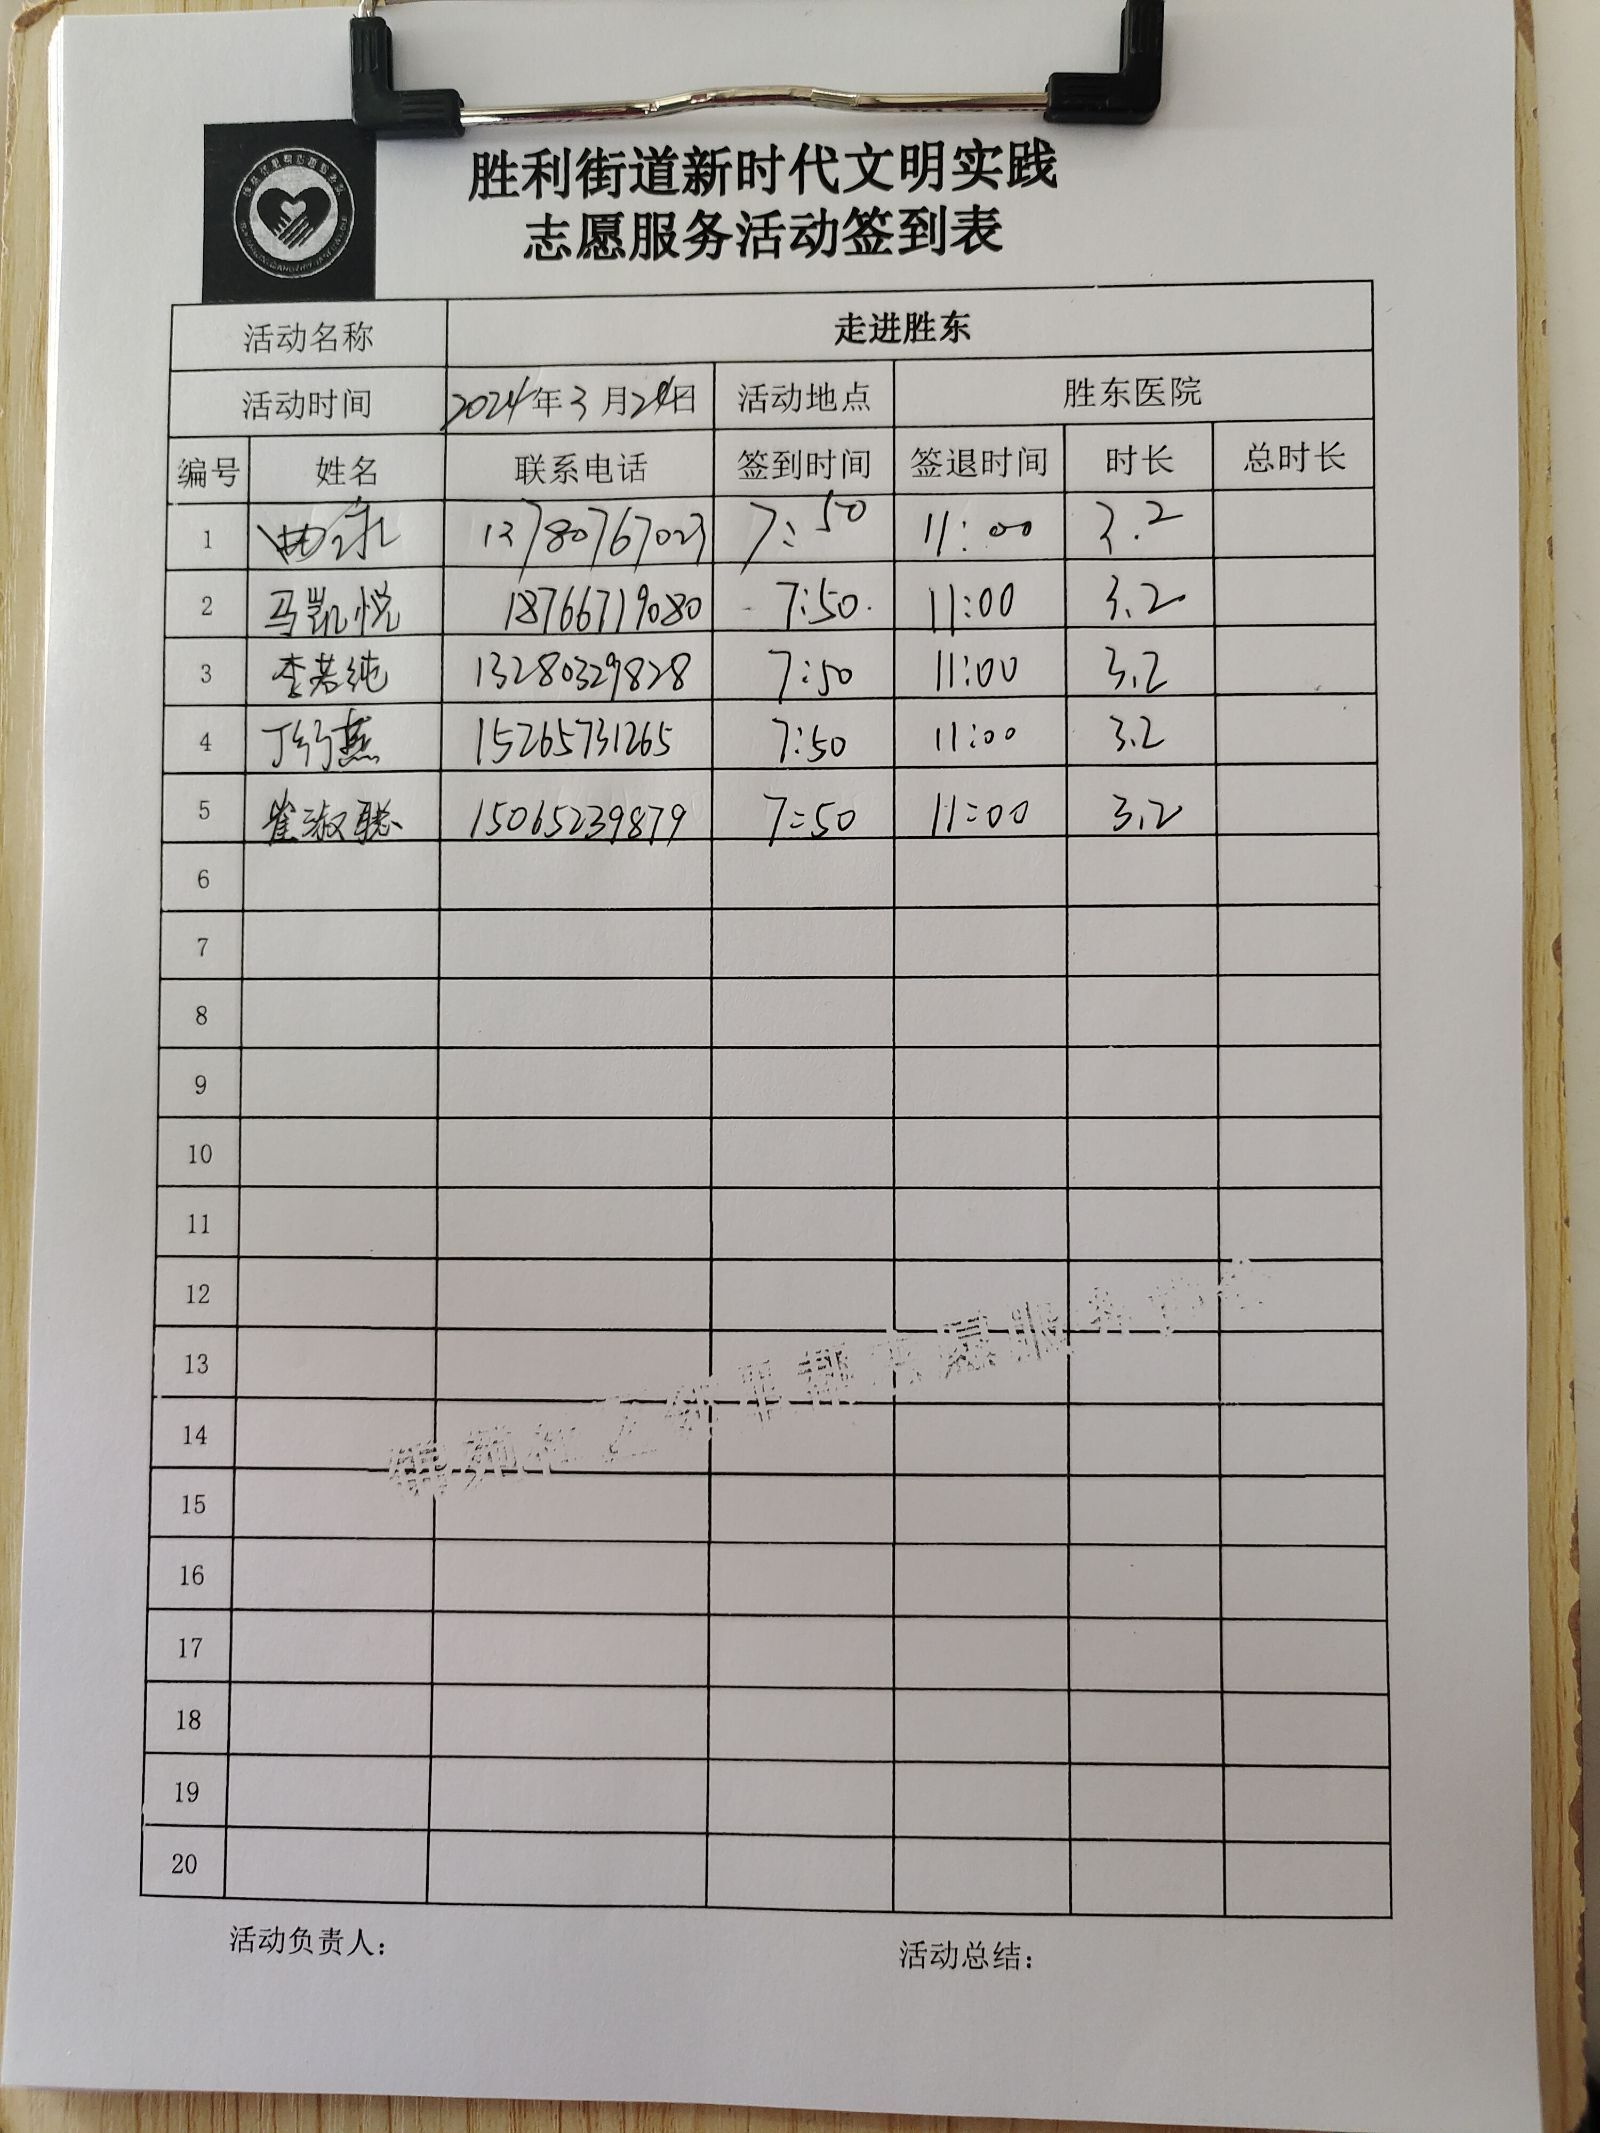 胜利街道新时代文明实践
志愿服务活动签到表
活动名称 走进胜东
活动时间 2024年3月24日 活动地点 胜东医院
编号 姓名 联系电话 签到时间 签退时间 时长 总时长
1 13780767023 7:50 11:00 3.2
2 马凯悦 18766719080 7:50 11:00 3.2
3 李若纯 13280329828 7:50 11:00 3.2
4 15265731265 7:50 11:00 3.2
5 崔淑聪 15065239879 7:50 11:00 3.2
6
7
8
9
10
11
12
13
14
15
16
17
18
19
20
活动负责人: 活动总结: